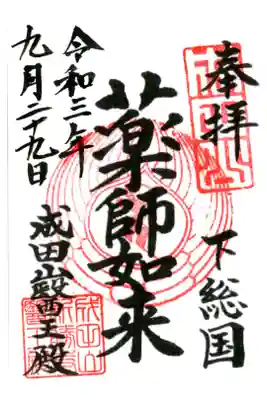 奉拝
下総国
薬師如来
令和三年
九月二十九日
成田山醫王殿